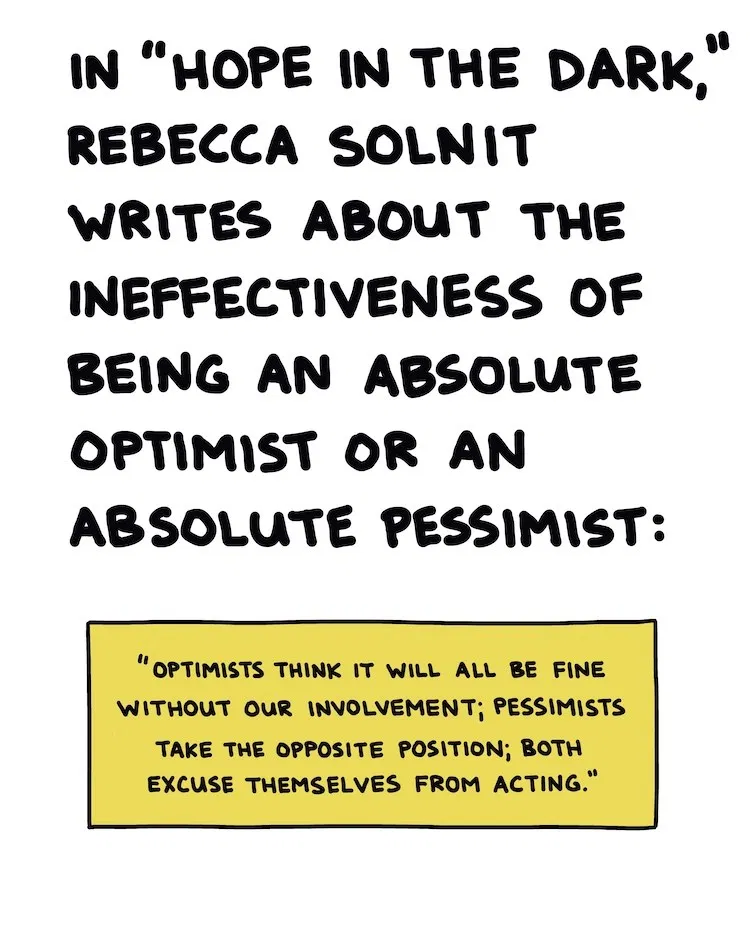 IN "HOPE IN THE DARK,"
REBECCA SOLNIT
WRITES ABOUT THE
INEFFECTIVENESS OF
BEING AN ABSOLUTE
OPTIMIST OR AN
ABSOLUTE PESSIMIST:
"OPTIMISTS THINK IT WILL ALL BE FINE
WITHOUT OUR INVOLVEMENT; PESSIMISTS
TAKE THE OPPOSITE POSITION; BOTH
EXCUSE THEMSELVES FROM ACTING."